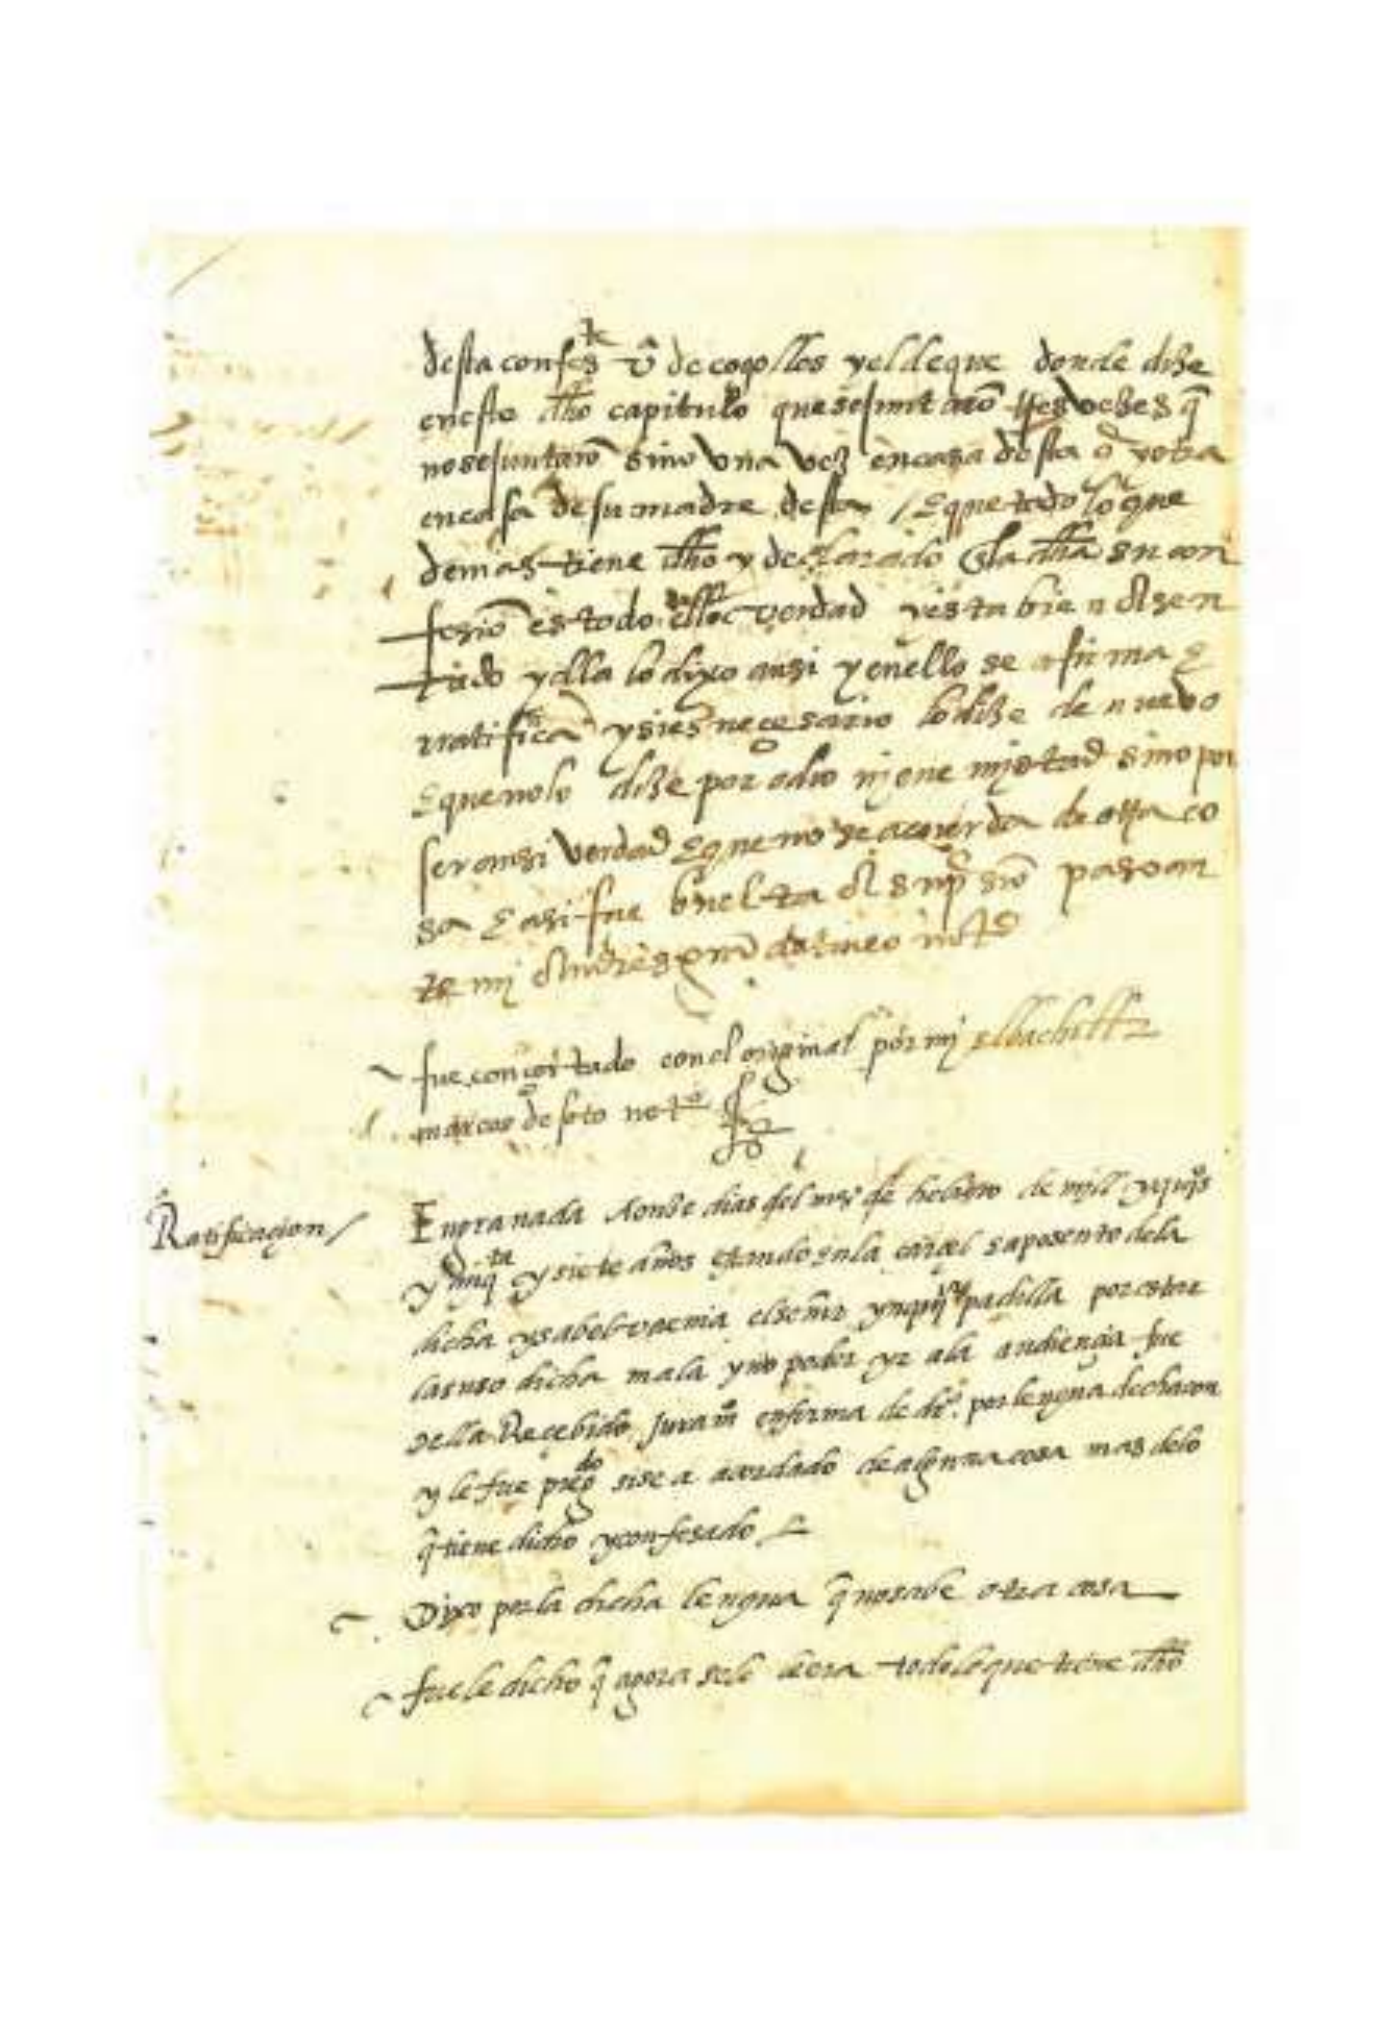 desta confes^te vº de cogollos y el de que donde dize
en este dho capitulo que se juntarõ tres vezes q̃
no se juntarõ sino una vez en casa desta cº y otra
en casa de su madre desta / E que todo lo que
demas tiene dho y declarado en la dha su con
fesiõ es todo ello verdad y esta bien asen
tado y ella lo dixo ansi y en ello se afirma E
rratifica y si es neçesario lo dize de nuevo
E que no lo dize por odio nj enemjstad sino por
ser ansi verdad E que no se acuerda de otra co
sa E asi fue buelta a su prisiõ paso an
te mj Andres de tineo notº
fue conçertado con el original por mj el bachiller
marcos de soto notº
Ratificaçion /
En granada A onze dias del mes de hebrero de mjll y quisº
y çinq^ta y siete años Estando En la carçel E aposento de la
dicha ysabel vaemia el señor ynqujºr padilla por estar
la suso dicha mala y no poder yr a la audiençia fue
della Reçebido juramº en forma de drº. por lengua de chacon
y le fue preg^do si se a acordado de alguna cosa mas de lo
q̃ tiene dicho y confesado
Dixo por la dicha lengua q̃ no sabe otra cosa
fue le dicho q̃ agora se le leera todo lo que tiene dho